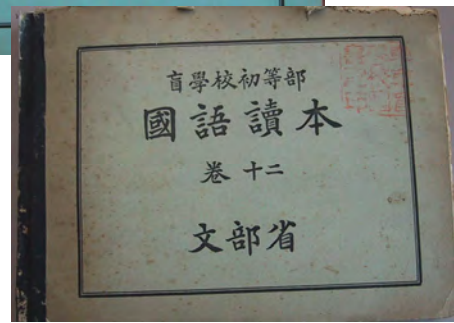 盲學校初等部
國語讀本
卷十二
文部省